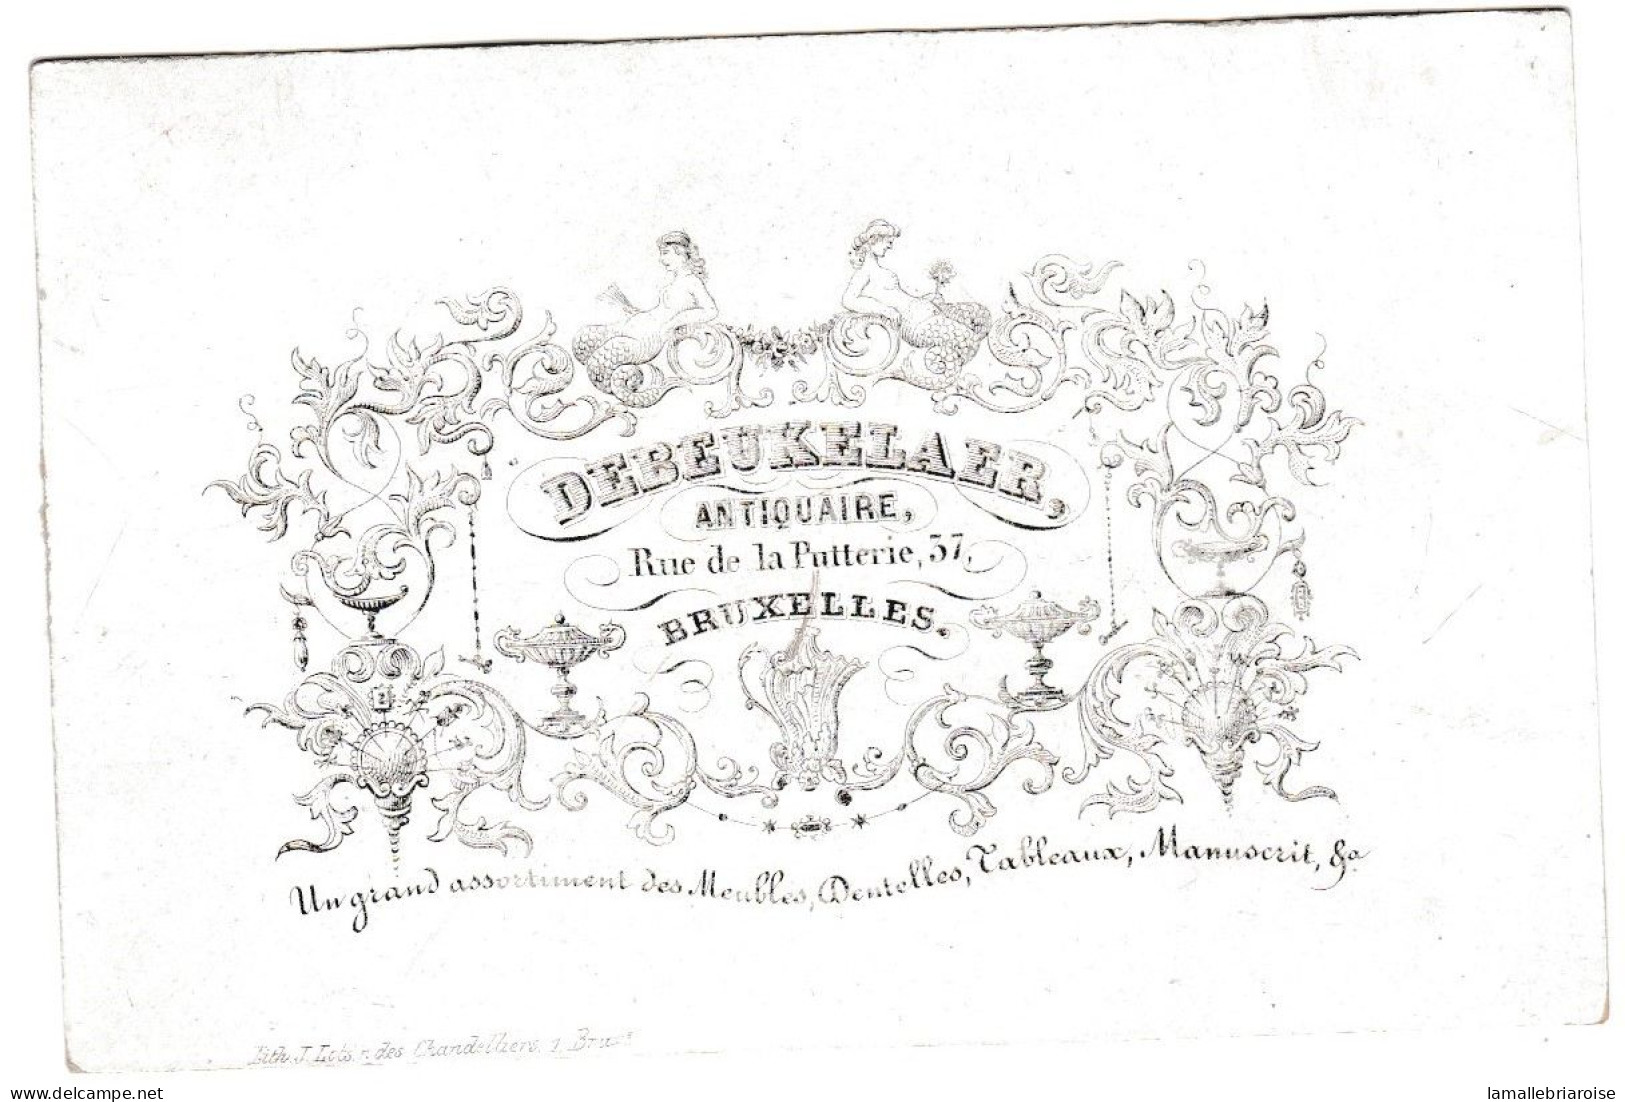 DEBEUKELAER,
ANTIQUAIRE,
Rue de la Putterie, 37,
BRUXELLES.
Un grand assortiment des Meubles, Dentelles, Tableaux, Manuscrit, &a
Lith. J. Lots r. des Chandelliers, 1, Brux
lamallebriaroise